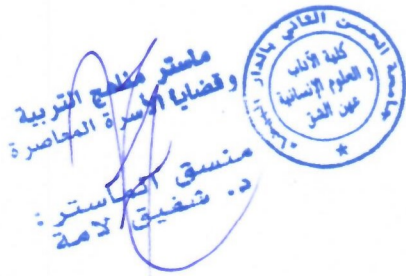 ماستر مناهج التربية
وقضايا الأسرة المعاصرة
منسق الماستر :
د. شفيق لامة
جامعة الحسن الثاني بالدار البيضاء
كلية الآداب
و العلوم الإنسانية
عين الشق